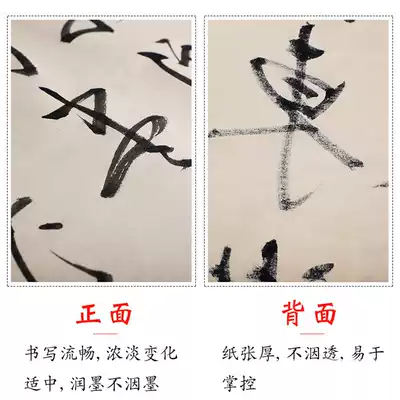 東
正面
背面
书写流畅,浓淡变化
适中,润墨不洇墨
纸张厚,不洇透,易于
掌控